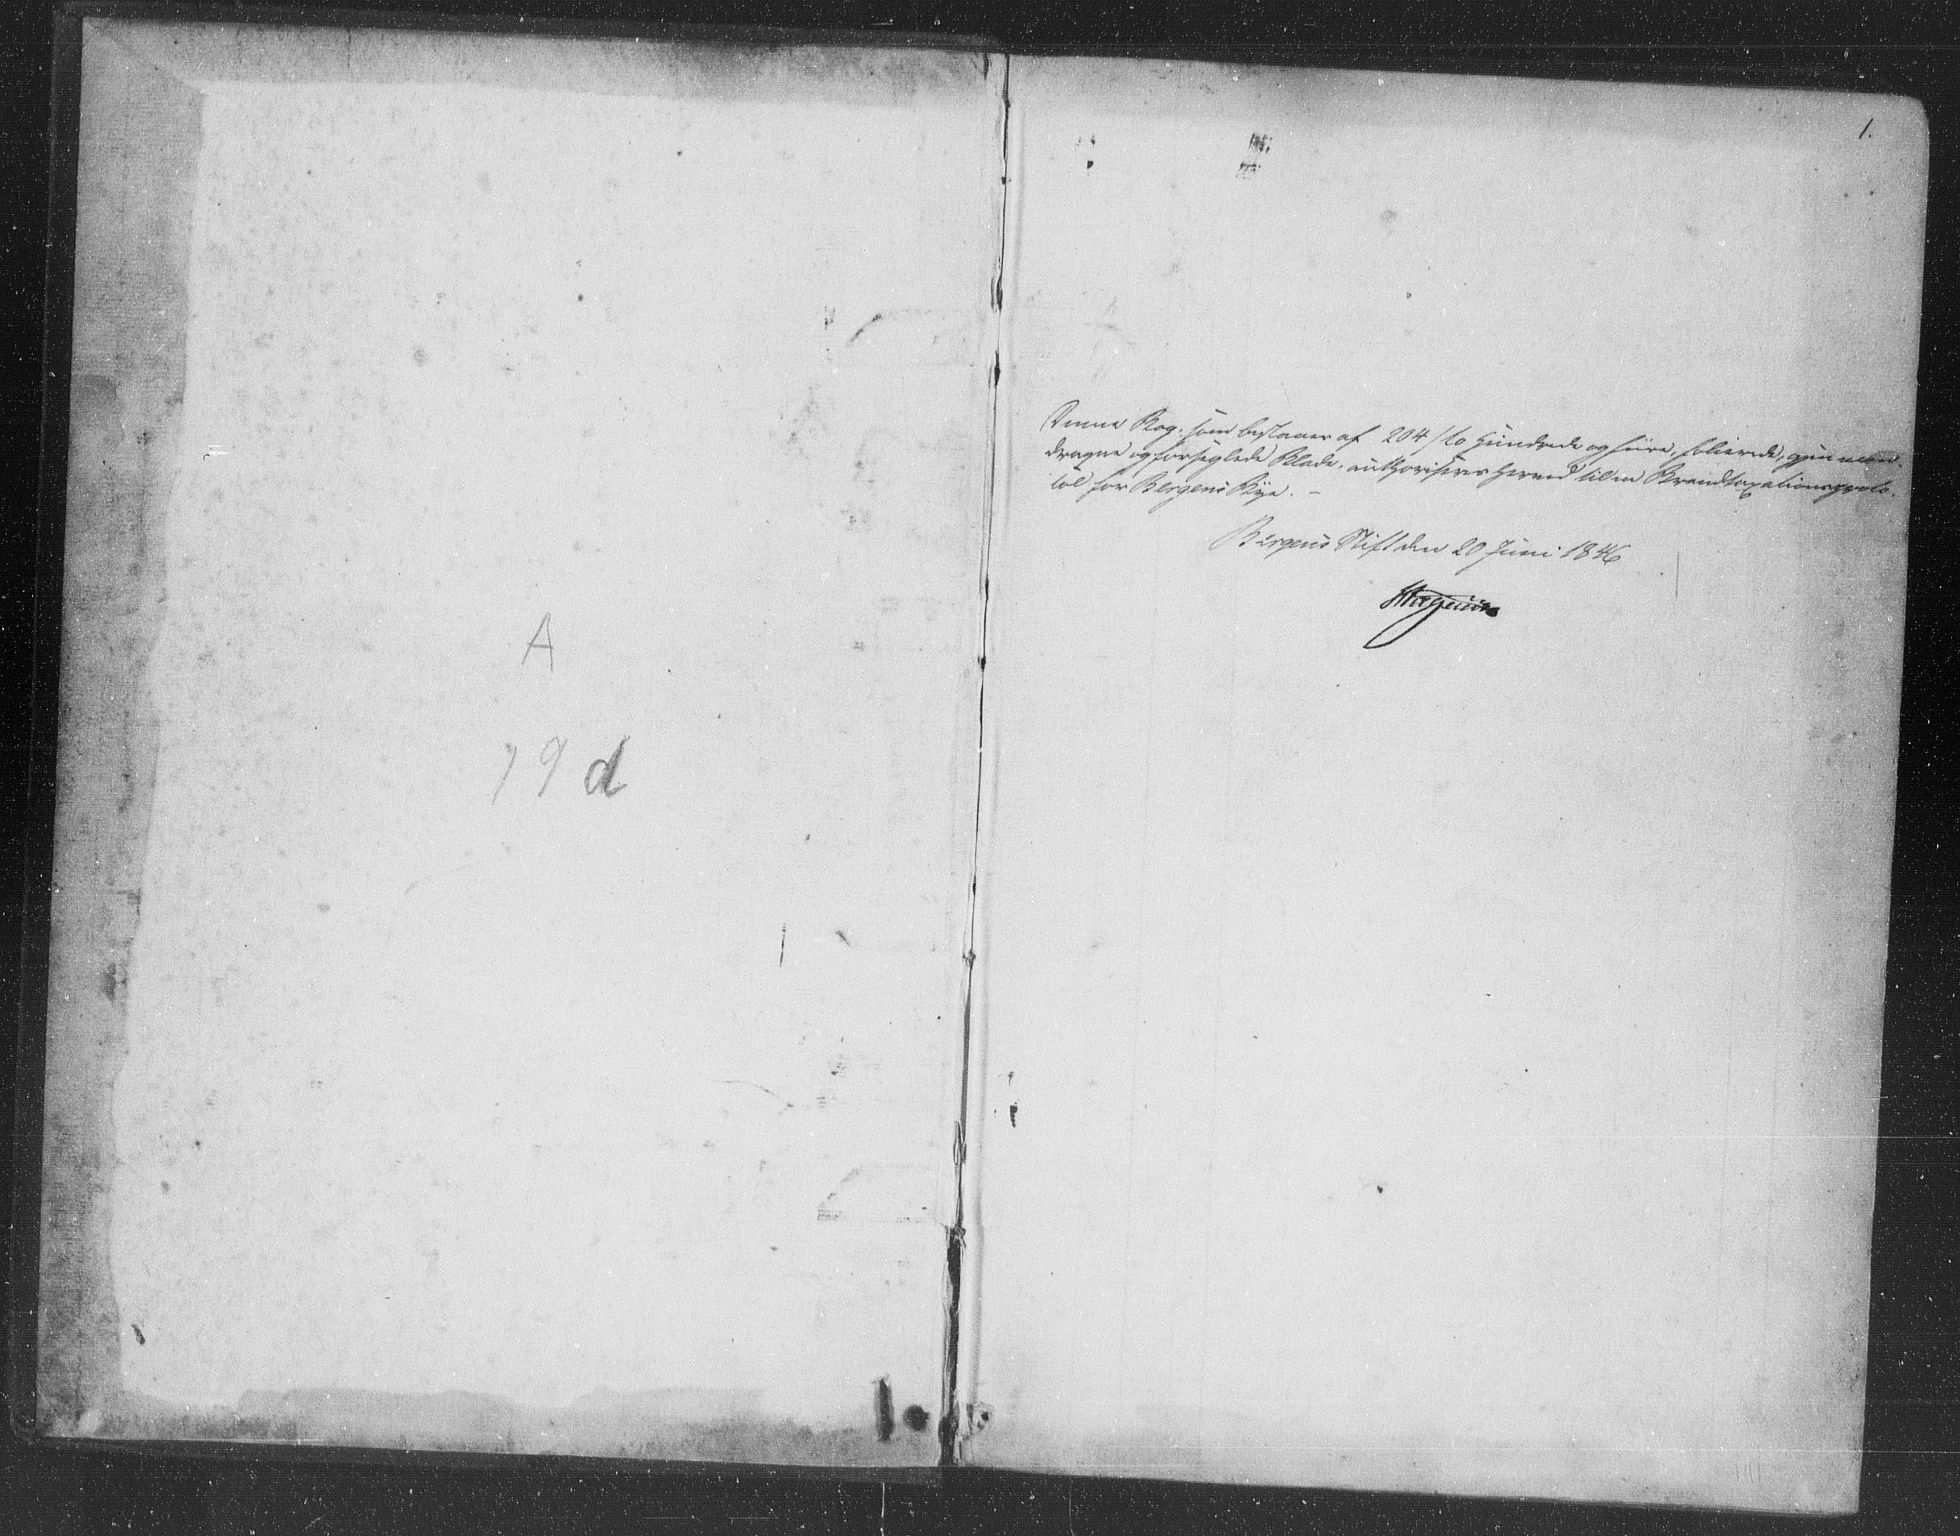 A
19 d
1.
Denne Bog, som bestaaer af 204 / to Hundrede og fiire, folierede, gjennem-
dragne og forseglede Blade, authoriseres herved til en Brandtaxationsproto-
col for Bergens Bye. -
Bergens Stift den 20 Juni 1846
Hagerup